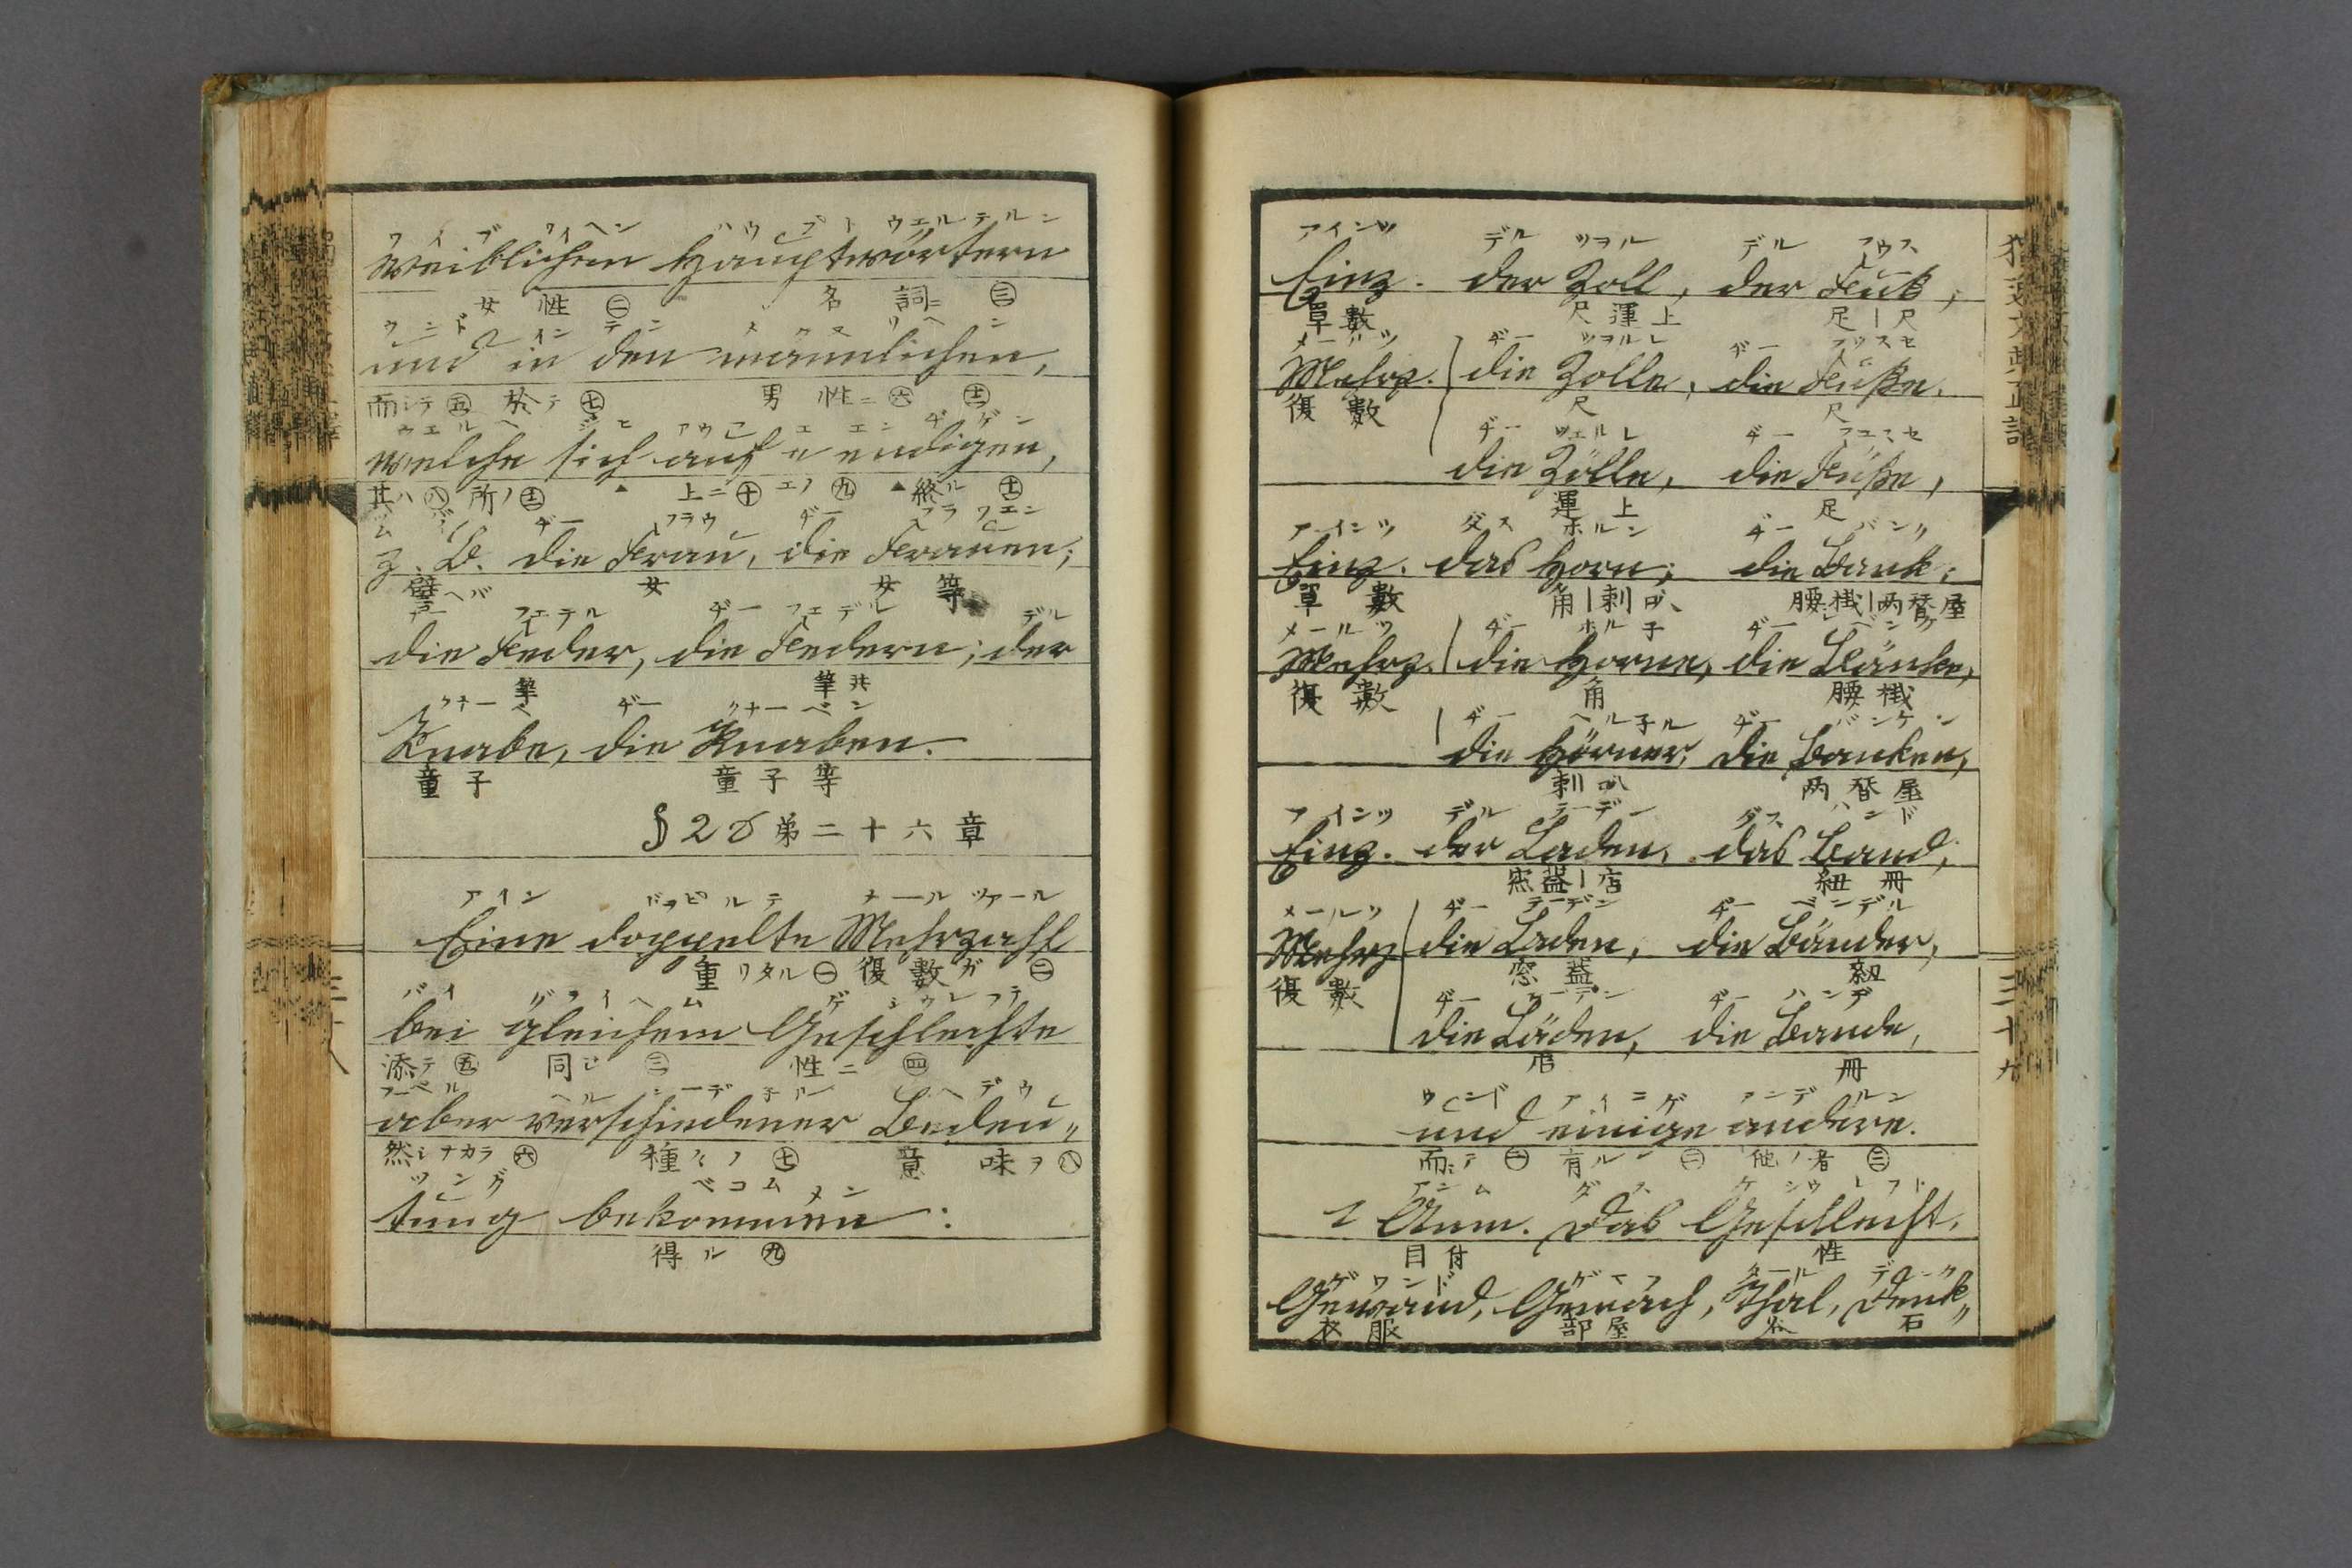 ワイブ ワイヘン ハウプト ウエルテルン
weiblichen Hauptwörtern
女性㊁ 名詞ニ ㊂
ウンド イン デン メンヌリヘン
und in den männlichen,
而シテ㊄ 於テ㊆ 男性ニ㊅
ウエルヘ ジヒ アウフ エ エンヂゲン
welche sich auf e endigen,
其ハ㊇ 所ノ 上ニ㊉ エノ㊈ 終ル
z. B. die Frau, die Frauen;
譬ヘバ 女 女等
フエデル ヂー フエデルン デル
die Feder, die Federn; der
筆 筆共
クナーベ ヂー クナーベン
Knabe, die Knaben.
童子 童子等
§ 26 第二十六章
アイン ドッピルテ メールツァール
Eine doppelte Mehrzahl
重リタル㊀ 復數ガ ㊁
バイ グライヘム ゲシウレフテ
bei gleichem Geschlechte
添テ㊄ 同ジ ㊂ 性ニ ㊃
アーベル ヘルシーデ子ル ベデウ
aber verschiedener Bedeu„
然シナカラ㊅ 種々ノ㊆ 意味ヲ㊇
ツング ベコムメン
tung bekommen:
得ル ㊈
アインツ デル ツヲル デル フウス
Einz. der Zoll, der Fuß,
單數 尺 運上 足|尺
メールツ ヂー ツヲルレ ヂー フウスセ
Mehrz. die Zolle, die Fuße.
復數 尺 尺
ヂー ツエルレ ヂー フユスセ
die Zölle, die Füße,
運上 足
アインツ ダス ホルン ヂー バンク
Einz. das Horn; die Bank;
單數 角|刺叭 腰掛|両替屋
メールツ ヂー ホル子 ヂー ベンケ
Mehrz. die Horne, die Bänke,
復數 角 腰掛
ヂー ヘル子ル ヂー バンケン
die Hörner, die Banken,
刺叭 両替屋
アインツ デル ラーデン ダス バンド
Einz. der Laden, das Band,
窓蓋|店 紐 冊
メールツ ヂー ラーデン ヂー ベンデル
Mehrz die Laden, die Bänder,
復數 窓蓋 紐
die Läden, die Bande,
店 冊
ウンド アイニゲ アンデルン
und einige andere.
而シテ㊀ 有ル ㊁ 他ノ者 ㊂
アンム ダス ゲシウレフト
1 Anm. Das Geschlecht,
目付 性
ゲワンド ゲマフ タール デンク
Gewand, Gemach, Thal, Denk„
衣服 部屋 谷 石
三十九